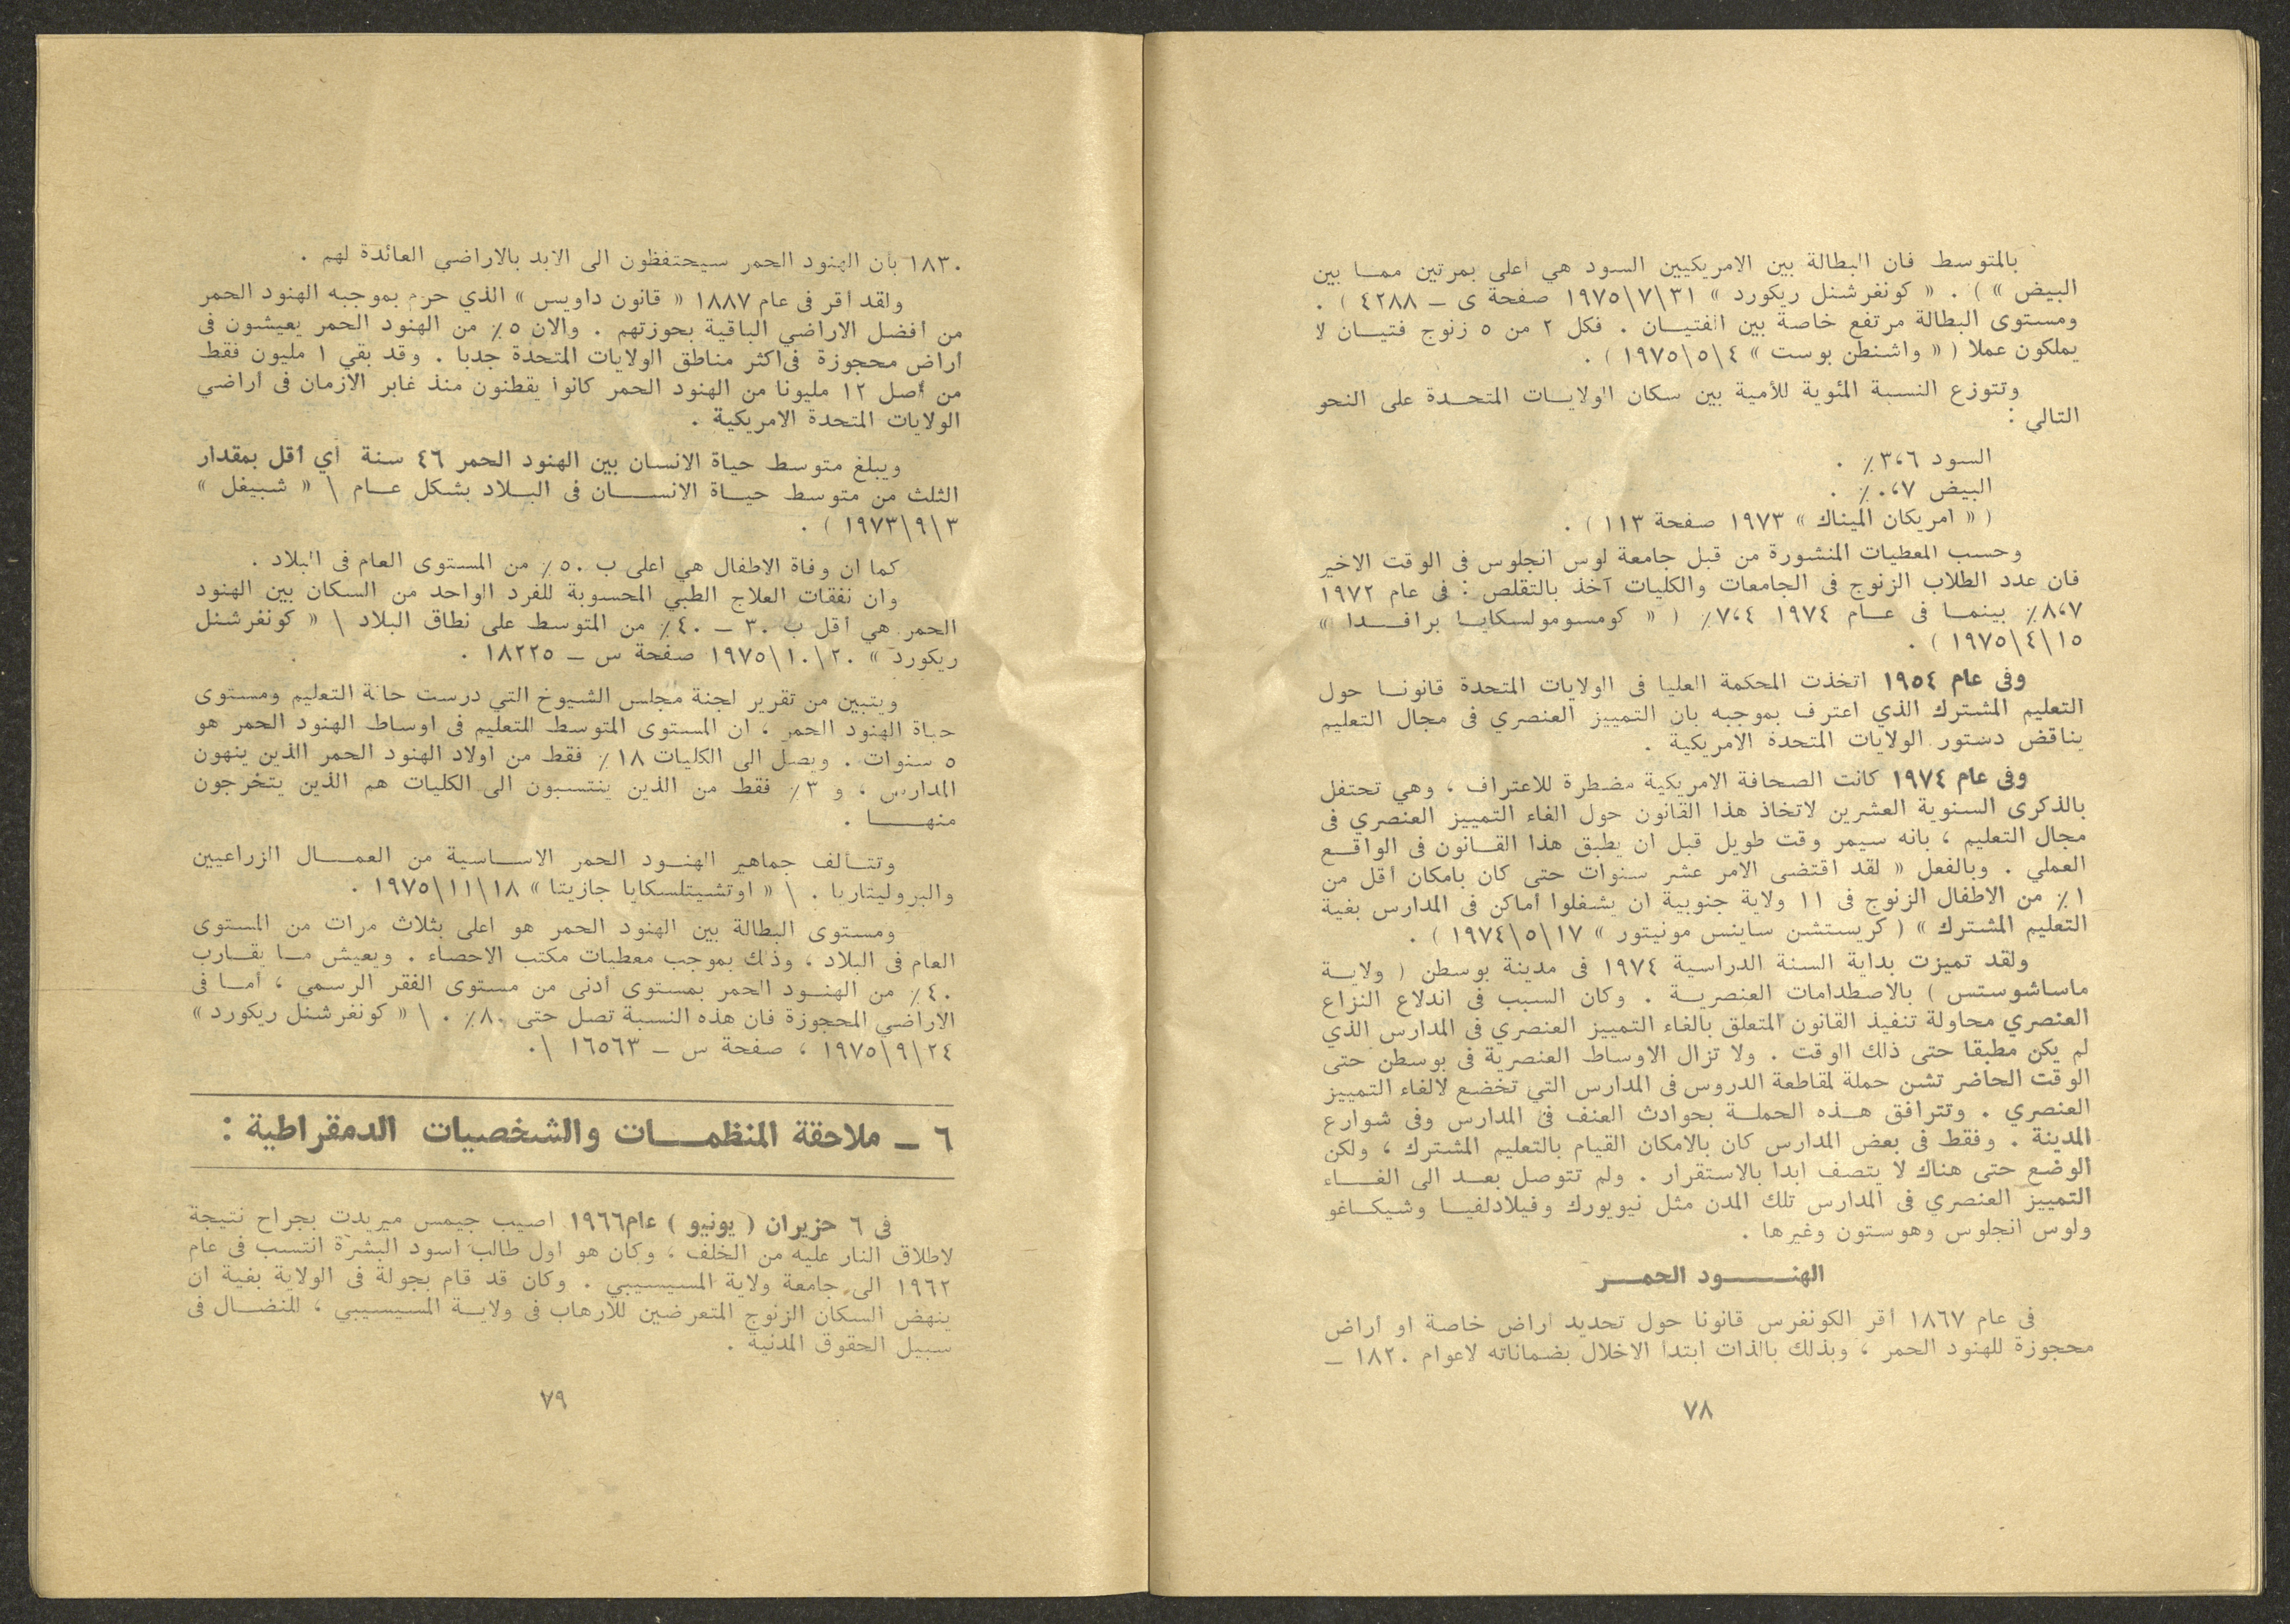 بالمتوسط فان البطالة بين الامريكيين السود هي اعلى بمرتين ممـا بين
البيض » ) . « كونفرشنل ريكورد » ٣١\٧\١٩٧٥ صفحة ى ـ ٤٢٨٨ ) .
ومستوى البطالة مرتفع خاصة بين الفتيـان . فكل ٢ من ٥ زنوج فتيـان لا
يملكون عملا ( « واشنطن بوست » ٤\٥\١٩٧٥ ) .
وتتوزع النسبة المئوية للأمية بين سكان الولايـات المتحـدة على النحو
التالي :
السود ٣،٦٪ .
البيض ٠،٧٪ .
( « امريكان الميناك » ١٩٧٣ صفحة ١١٣ ) .
وحسب المعطيات المنشورة من قبل جامعة لوس انجلوس فى الوقت الاخير
فان عدد الطلاب الزنوج فى الجامعات والكليات آخذ بالتقلص : فى عام ١٩٧٢
٨،٧٪ بينمـا فى عـام ١٩٧٤ ٧،٤٪ ( « كومسومولسكايـا برافـدا »
١٥\٤\١٩٧٥ ) .
وفى عام ١٩٥٤ اتخذت المحكمة العليا فى الولايات المتحدة قانونـا حول
التعليم المشترك الذي اعترف بموجبه بان التمييز العنصري فى مجال التعليم
يناقض دستور الولايات المتحدة الامريكية .
وفى عام ١٩٧٤ كانت الصحافة الامريكية مضطرة للاعتراف ، وهي تحتفل
بالذكرى السنوية العشرين لاتخاذ هذا القانون حول الغاء التمييز العنصري فى
مجال التعليم ، بانه سيمر وقت طويل قبل ان يطبق هذا القـانون فى الواقـع
العملي . وبالفعل « لقد اقتضى الامر عشر سنوات حتى كان بامكان أقل من
١٪ من الاطفال الزنوج فى ١١ ولاية جنوبية ان يشغلوا أماكن فى المدارس بغية
التعليم المشترك » ( كريستشن ساينس مونيتور » ١٧\٥\١٩٧٤ ) .
ولقد تميزت بداية السنة الدراسية ١٩٧٤ فى مدينة بوسطن ( ولايـة
ماساشوستس ) بالاصطدامات العنصريـة . وكان السبب فى اندلاع النزاع
العنصري محاولة تنفيذ القانون المتعلق بالغاء التمييز العنصري فى المدارس الذي
لم يكن مطبقا حتى ذلك الوقت . ولا تزال الاوساط العنصرية فى بوسطن حتى
الوقت الحاضر تشن حملة لمقاطعة الدروس فى المدارس التي تخضع لالغاء التمييز
العنصري . وتترافق هـذه الحملـة بحوادث العنف فى المدارس وفى شوارع
المدينة . وفقط فى بعض المدارس كان بالامكان القيام بالتعليم المشترك ، ولكن
الوضع حتى هناك لا يتصف ابدا بالاستقرار . ولم تتوصل بعـد الى الغـاء
التمييز العنصري فى المدارس تلك المدن مثل نيويورك وفيلادلفيـا وشيكـاغو
ولوس انجلوس وهوستون وغيرها .
الهنـود الحمـر
فى عام ١٨٦٧ أقر الكونغرس قانونا حول تحديد أراض خاصة او أراض
محجوزة للهنود الحمر ، وبذلك بالذات ابتدأ الاخلال بضماناته لاعوام ١٨٢٠ ـ
٧٨
١٨٣٠ بأن الهنود الحمر سيحتفظون الى الابد بالاراضي العائدة لهم .
ولقد أقر فى عام ١٨٨٧ « قانون داويس » الذي حرم بموجبه الهنود الحمر
من أفضل الاراضي الباقية بحوزتهم . والان ٥٪ من الهنود الحمر يعيشون فى
اراض محجوزة فى اكثر مناطق الولايات المتحدة جدبا . وقد بقي ١ مليون فقط
من أصل ١٢ مليونا من الهنود الحمر كانوا يقطنون منذ غابر الازمان فى أراضي
الولايات المتحدة الامريكية .
ويبلغ متوسط حياة الانسان بين الهنود الحمر ٤٦ سنة أي أقل بمقدار
الثلث من متوسط حيـاة الانسـان فى البـلاد بشكل عـام \ « شبيغل »
٣\٩\١٩٧٣ ) .
كما ان وفاة الاطفال هي اعلى ب ٥٠٪ من المستوى العام فى البلاد .
وان نفقات العلاج الطبي المحسوبة للفرد الواحد من السكان بين الهنود
الحمر هي أقل ب ٣٠ ـ ٤٠٪ من المتوسط على نطاق البلاد \ « كونفرشنل
ريكورد » ٢٠\١٠\١٩٧٥ صفحة س ـ ١٨٢٢٥ .
ويتبين من تقرير لجنة مجلس الشيوخ التي درست حالة التعليم ومستوى
حياة الهنود الحمر ، ان المستوى المتوسط للتعليم فى اوساط الهنود الحمر هو
٥ سنوات . ويصل الى الكليات ١٨٪ فقط من اولاد الهنود الحمر الذين ينهون
المدارس ، و ٣٪ فقط من الذين ينتسبون الى الكليات هم الذين يتخرجون
منهـا .
وتتـألف جماهير الهنـود الحمر الاسـاسية من العمـال الزراعيين
والبروليتاريا . \ « اوتشيتلسكايا جازيتا » ١٨\١١\١٩٧٥ .
ومستوى البطالة بين الهنود الحمر هو اعلى بثلاث مرات من المستوى
العام فى البلاد ، وذلك بموجب معطيات مكتب الاحصاء . ويعيش مـا يقـارب
٤٠٪ من الهنـود الحمر بمستوى أدنى من مستوى الفقر الرسمي ، أمـا فى
الاراضي المحجوزة فان هذه النسبة تصل حتى ٨٠٪ . \ « كونفرشنل ريكورد »
٢٤\٩\١٩٧٥ ، صفحة س ـ ١٦٥٦٣ \.
٦ ـ ملاحقة المنظمـات والشخصيات الدمقراطية :
فى ٦ حزيران ( يونيو ) عام١٩٦٦ اصيب جيمس ميريدت بجراح نتيجة
لاطلاق النار عليه من الخلف ، وكان هو اول طالب اسود البشرة انتسب فى عام
١٩٦٢ الى جامعة ولاية المسيسيبي . وكان قد قام بجولة فى الولاية بغية ان
ينهض السكان الزنوج المتعرضين للارهاب فى ولايـة المسيسيبي ، للنضـال فى
سبيل الحقوق المدنية .
٧٩